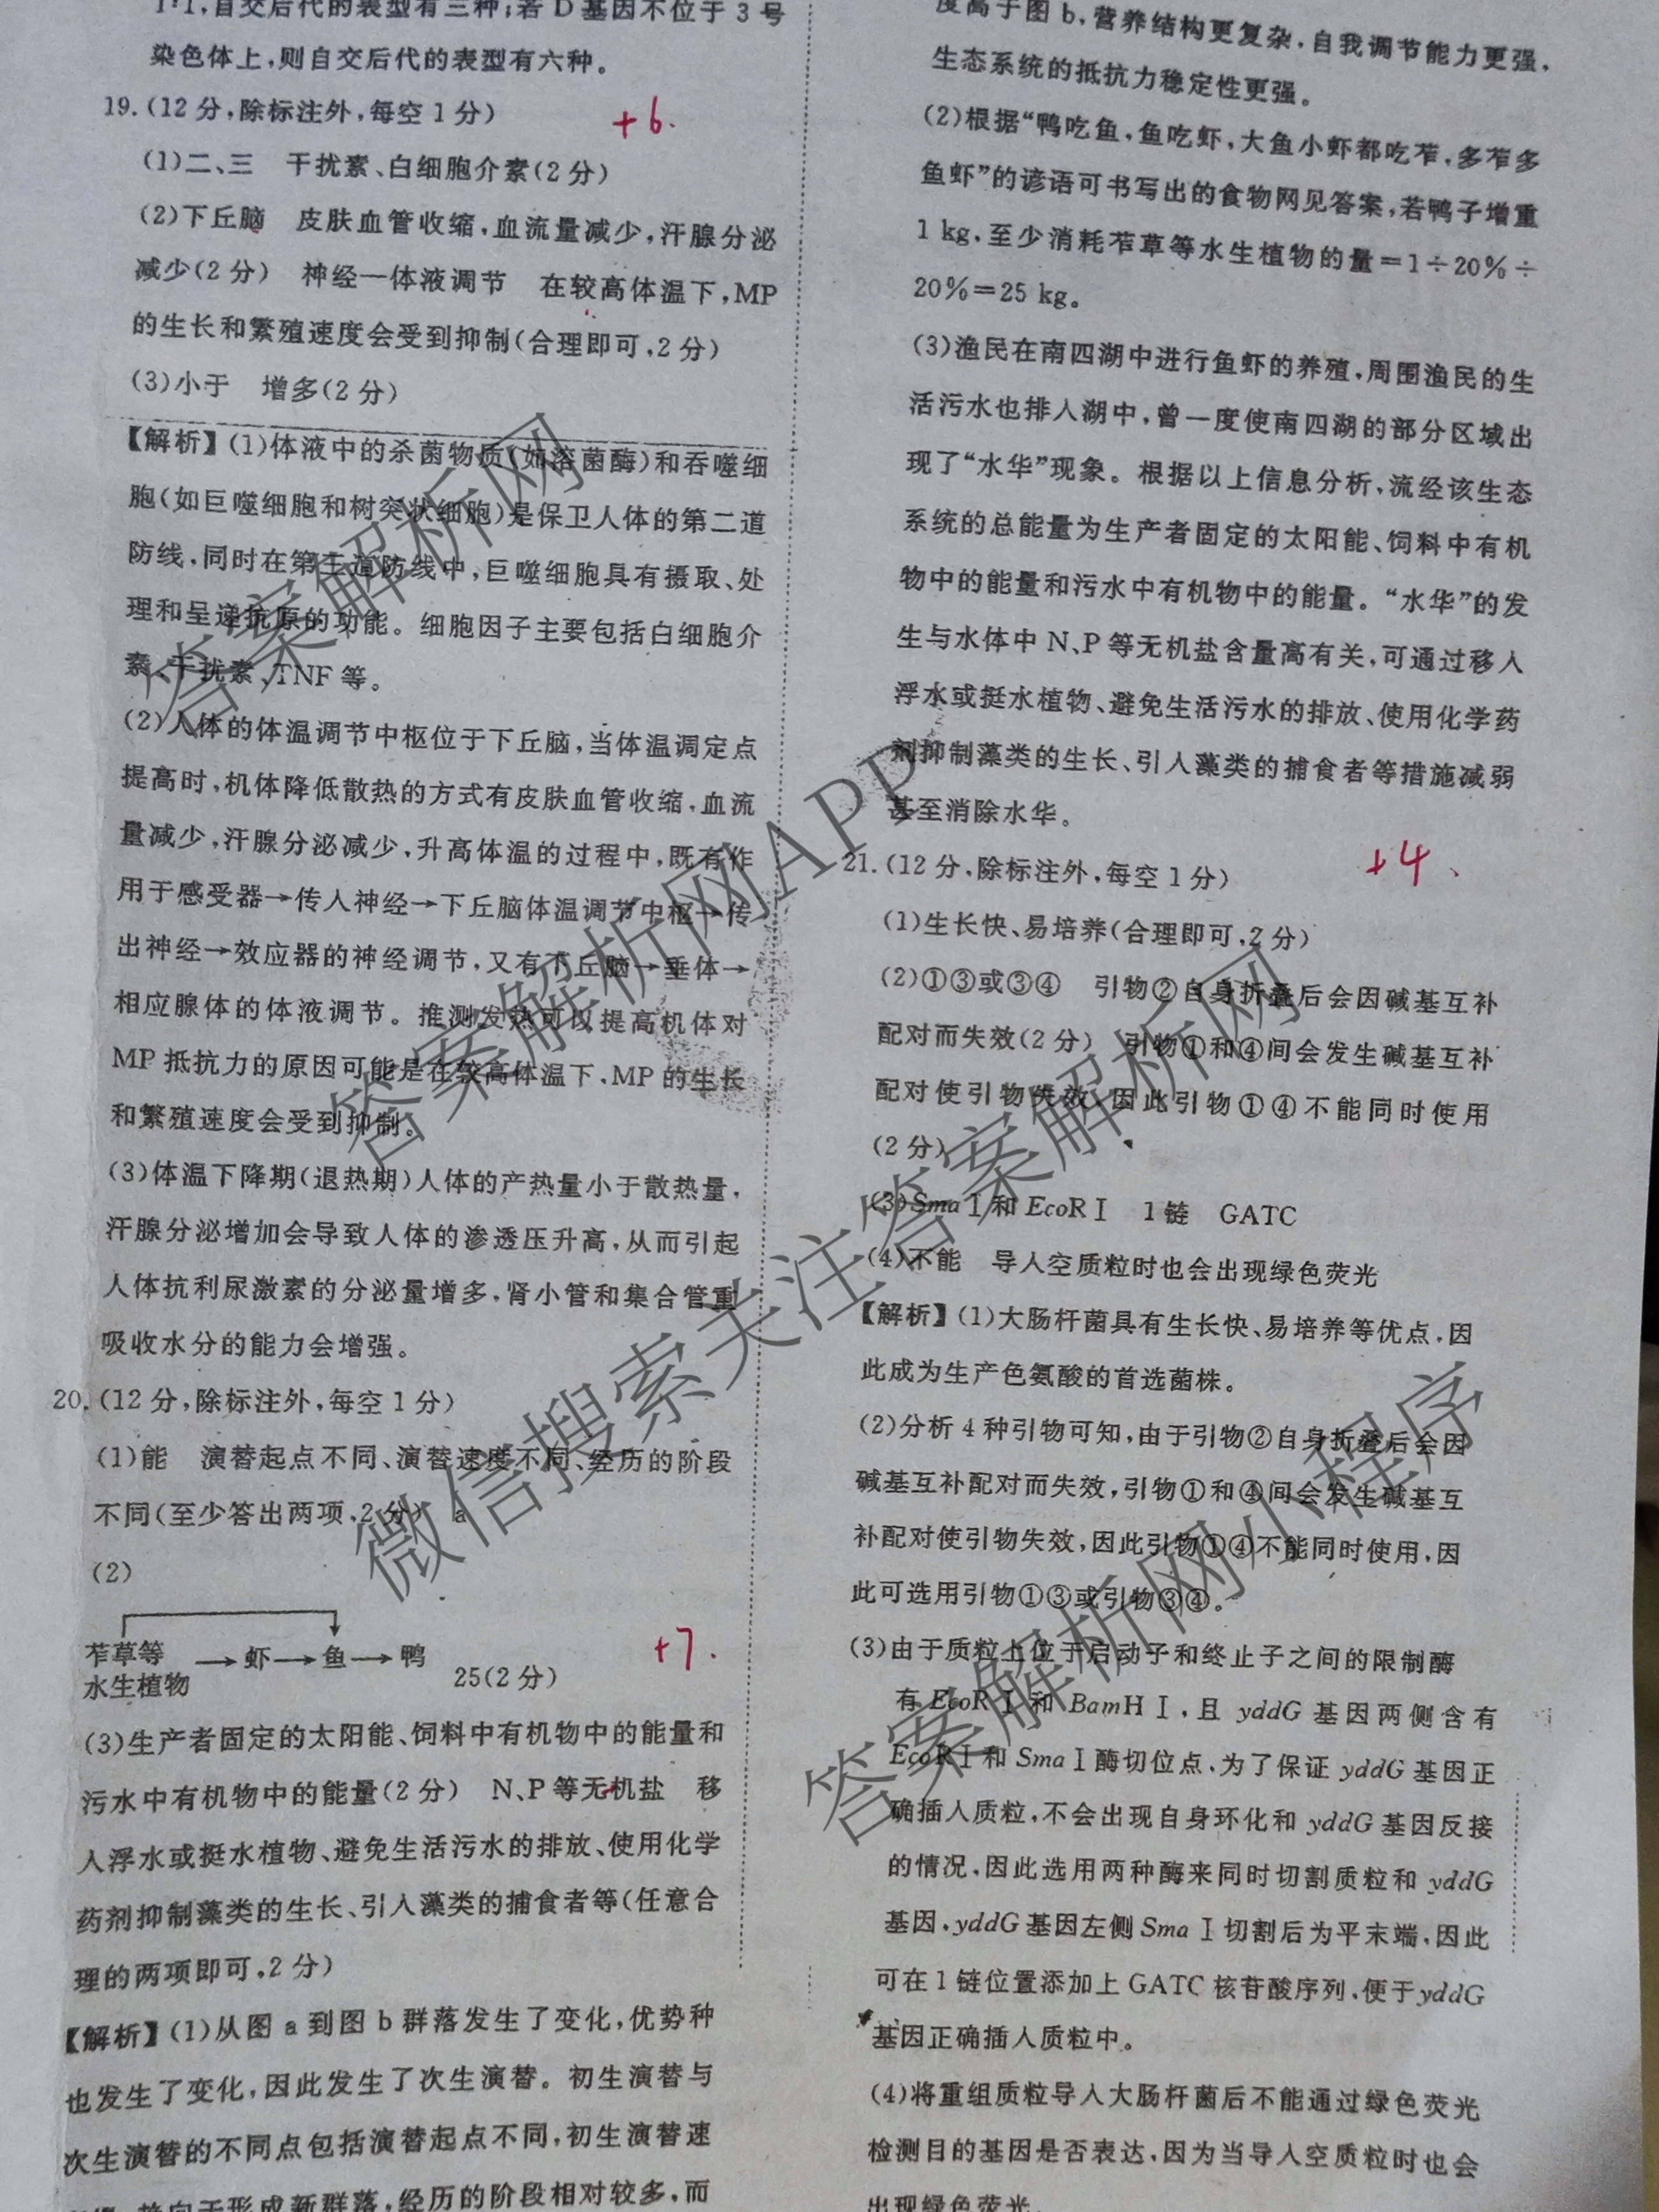 1∶1,自交后代的表型有三种;若D基因不位于3号
染色体上,则自交后代的表型有六种。
19.(12分,除标注外,每空1分)
+6.
(1)二、三 干扰素、白细胞介素(2分)
(2)下丘脑 皮肤血管收缩,血流量减少,汗腺分泌
减少(2分) 神经—体液调节 在较高体温下,MP
的生长和繁殖速度会受到抑制(合理即可,2分)
(3)小于 增多(2分)
【解析】(1)体液中的杀菌物质(如溶菌酶)和吞噬细
胞(如巨噬细胞和树突状细胞)是保卫人体的第二道
防线,同时在第三道防线中,巨噬细胞具有摄取、处
理和呈递抗原的功能。细胞因子主要包括白细胞介
素、干扰素、TNF等。
(2)人体的体温调节中枢位于下丘脑,当体温调定点
提高时,机体降低散热的方式有皮肤血管收缩,血流
量减少,汗腺分泌减少,升高体温的过程中,既有作
用于感受器→传入神经→下丘脑体温调节中枢→传
出神经→效应器的神经调节,又有下丘脑→垂体→
相应腺体的体液调节。推测发热可以提高机体对
MP抵抗力的原因可能是在较高体温下,MP的生长
和繁殖速度会受到抑制。
(3)体温下降期(退热期)人体的产热量小于散热量,
汗腺分泌增加会导致人体的渗透压升高,从而引起
人体抗利尿激素的分泌量增多,肾小管和集合管重
吸收水分的能力会增强。
20.(12分,除标注外,每空1分)
(1)能 演替起点不同、演替速度不同、经历的阶段
不同(至少答出两项,2分) a
(2)
苲草等
水生植物 → 虾 → 鱼 → 鸭 25(2分)
+7.
(3)生产者固定的太阳能、饲料中有机物中的能量和
污水中有机物中的能量(2分) N、P等无机盐 移
入浮水或挺水植物、避免生活污水的排放、使用化学
药剂抑制藻类的生长、引入藻类的捕食者等(任意合
理的两项即可,2分)
【解析】(1)从图a到图b群落发生了变化,优势种
也发生了变化,因此发生了次生演替。初生演替与
次生演替的不同点包括演替起点不同,初生演替速
趋向于形成新群落,经历的阶段相对较多,而
度高于图b,营养结构更复杂,自我调节能力更强,
生态系统的抵抗力稳定性更强。
(2)根据“鸭吃鱼,鱼吃虾,大鱼小虾都吃苲,多苲多
鱼虾”的谚语可书写出的食物网见答案,若鸭子增重
1 kg,至少消耗苲草等水生植物的量=1÷20%÷
20%=25 kg。
(3)渔民在南四湖中进行鱼虾的养殖,周围渔民的生
活污水也排入湖中,曾一度使南四湖的部分区域出
现了“水华”现象。根据以上信息分析,流经该生态
系统的总能量为生产者固定的太阳能、饲料中有机
物中的能量和污水中有机物中的能量。“水华”的发
生与水体中N、P等无机盐含量高有关,可通过移入
浮水或挺水植物、避免生活污水的排放、使用化学药
剂抑制藻类的生长、引入藻类的捕食者等措施减弱
甚至消除水华。
21.(12分,除标注外,每空1分)
+4.
(1)生长快、易培养(合理即可,2分)
(2)①③或③④ 引物②自身折叠后会因碱基互补
配对而失效(2分) 引物①和④间会发生碱基互补
配对使引物失效,因此引物①④不能同时使用
(2分)
(3)SmaⅠ和EcoRⅠ 1链 GATC
(4)不能 导入空质粒时也会出现绿色荧光
【解析】(1)大肠杆菌具有生长快、易培养等优点,因
此成为生产色氨酸的首选菌株。
(2)分析4种引物可知,由于引物②自身折叠后会因
碱基互补配对而失效,引物①和④间会发生碱基互
补配对使引物失效,因此引物①④不能同时使用,因
此可选用引物①③或引物③④。
(3)由于质粒上位于启动子和终止子之间的限制酶
有EcoRⅠ和BamHⅠ,且yddG基因两侧含有
EcoRⅠ和SmaⅠ酶切位点,为了保证yddG基因正
确插入质粒,不会出现自身环化和yddG基因反接
的情况,因此选用两种酶来同时切割质粒和yddG
基因,yddG基因左侧SmaⅠ切割后为平末端,因此
可在1链位置添加上GATC核苷酸序列,便于yddG
基因正确插入质粒中。
(4)将重组质粒导入大肠杆菌后不能通过绿色荧光
检测目的基因是否表达,因为当导入空质粒时也会
出现绿色荧光。
答案解析网
答案解析网APP
微信搜索关注答案解析网
答案解析网小程序